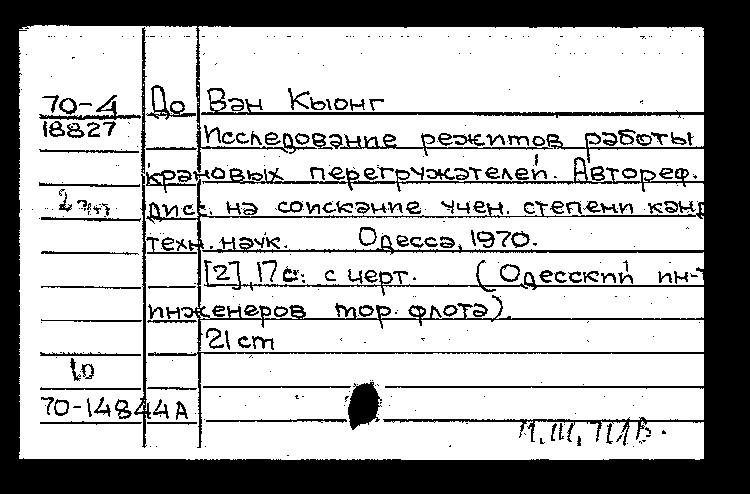 70-4 До Ван Кыонг
18827 Исследование режимов работы
крановых перегружателей. Автореф.
дисс. на соискание учен. степени канд
техн. наук. Одесса, 1970.
[2], 17 с. с черт. (Одесский ин-т
инженеров мор. флота).
21 cm
10
70-14844А